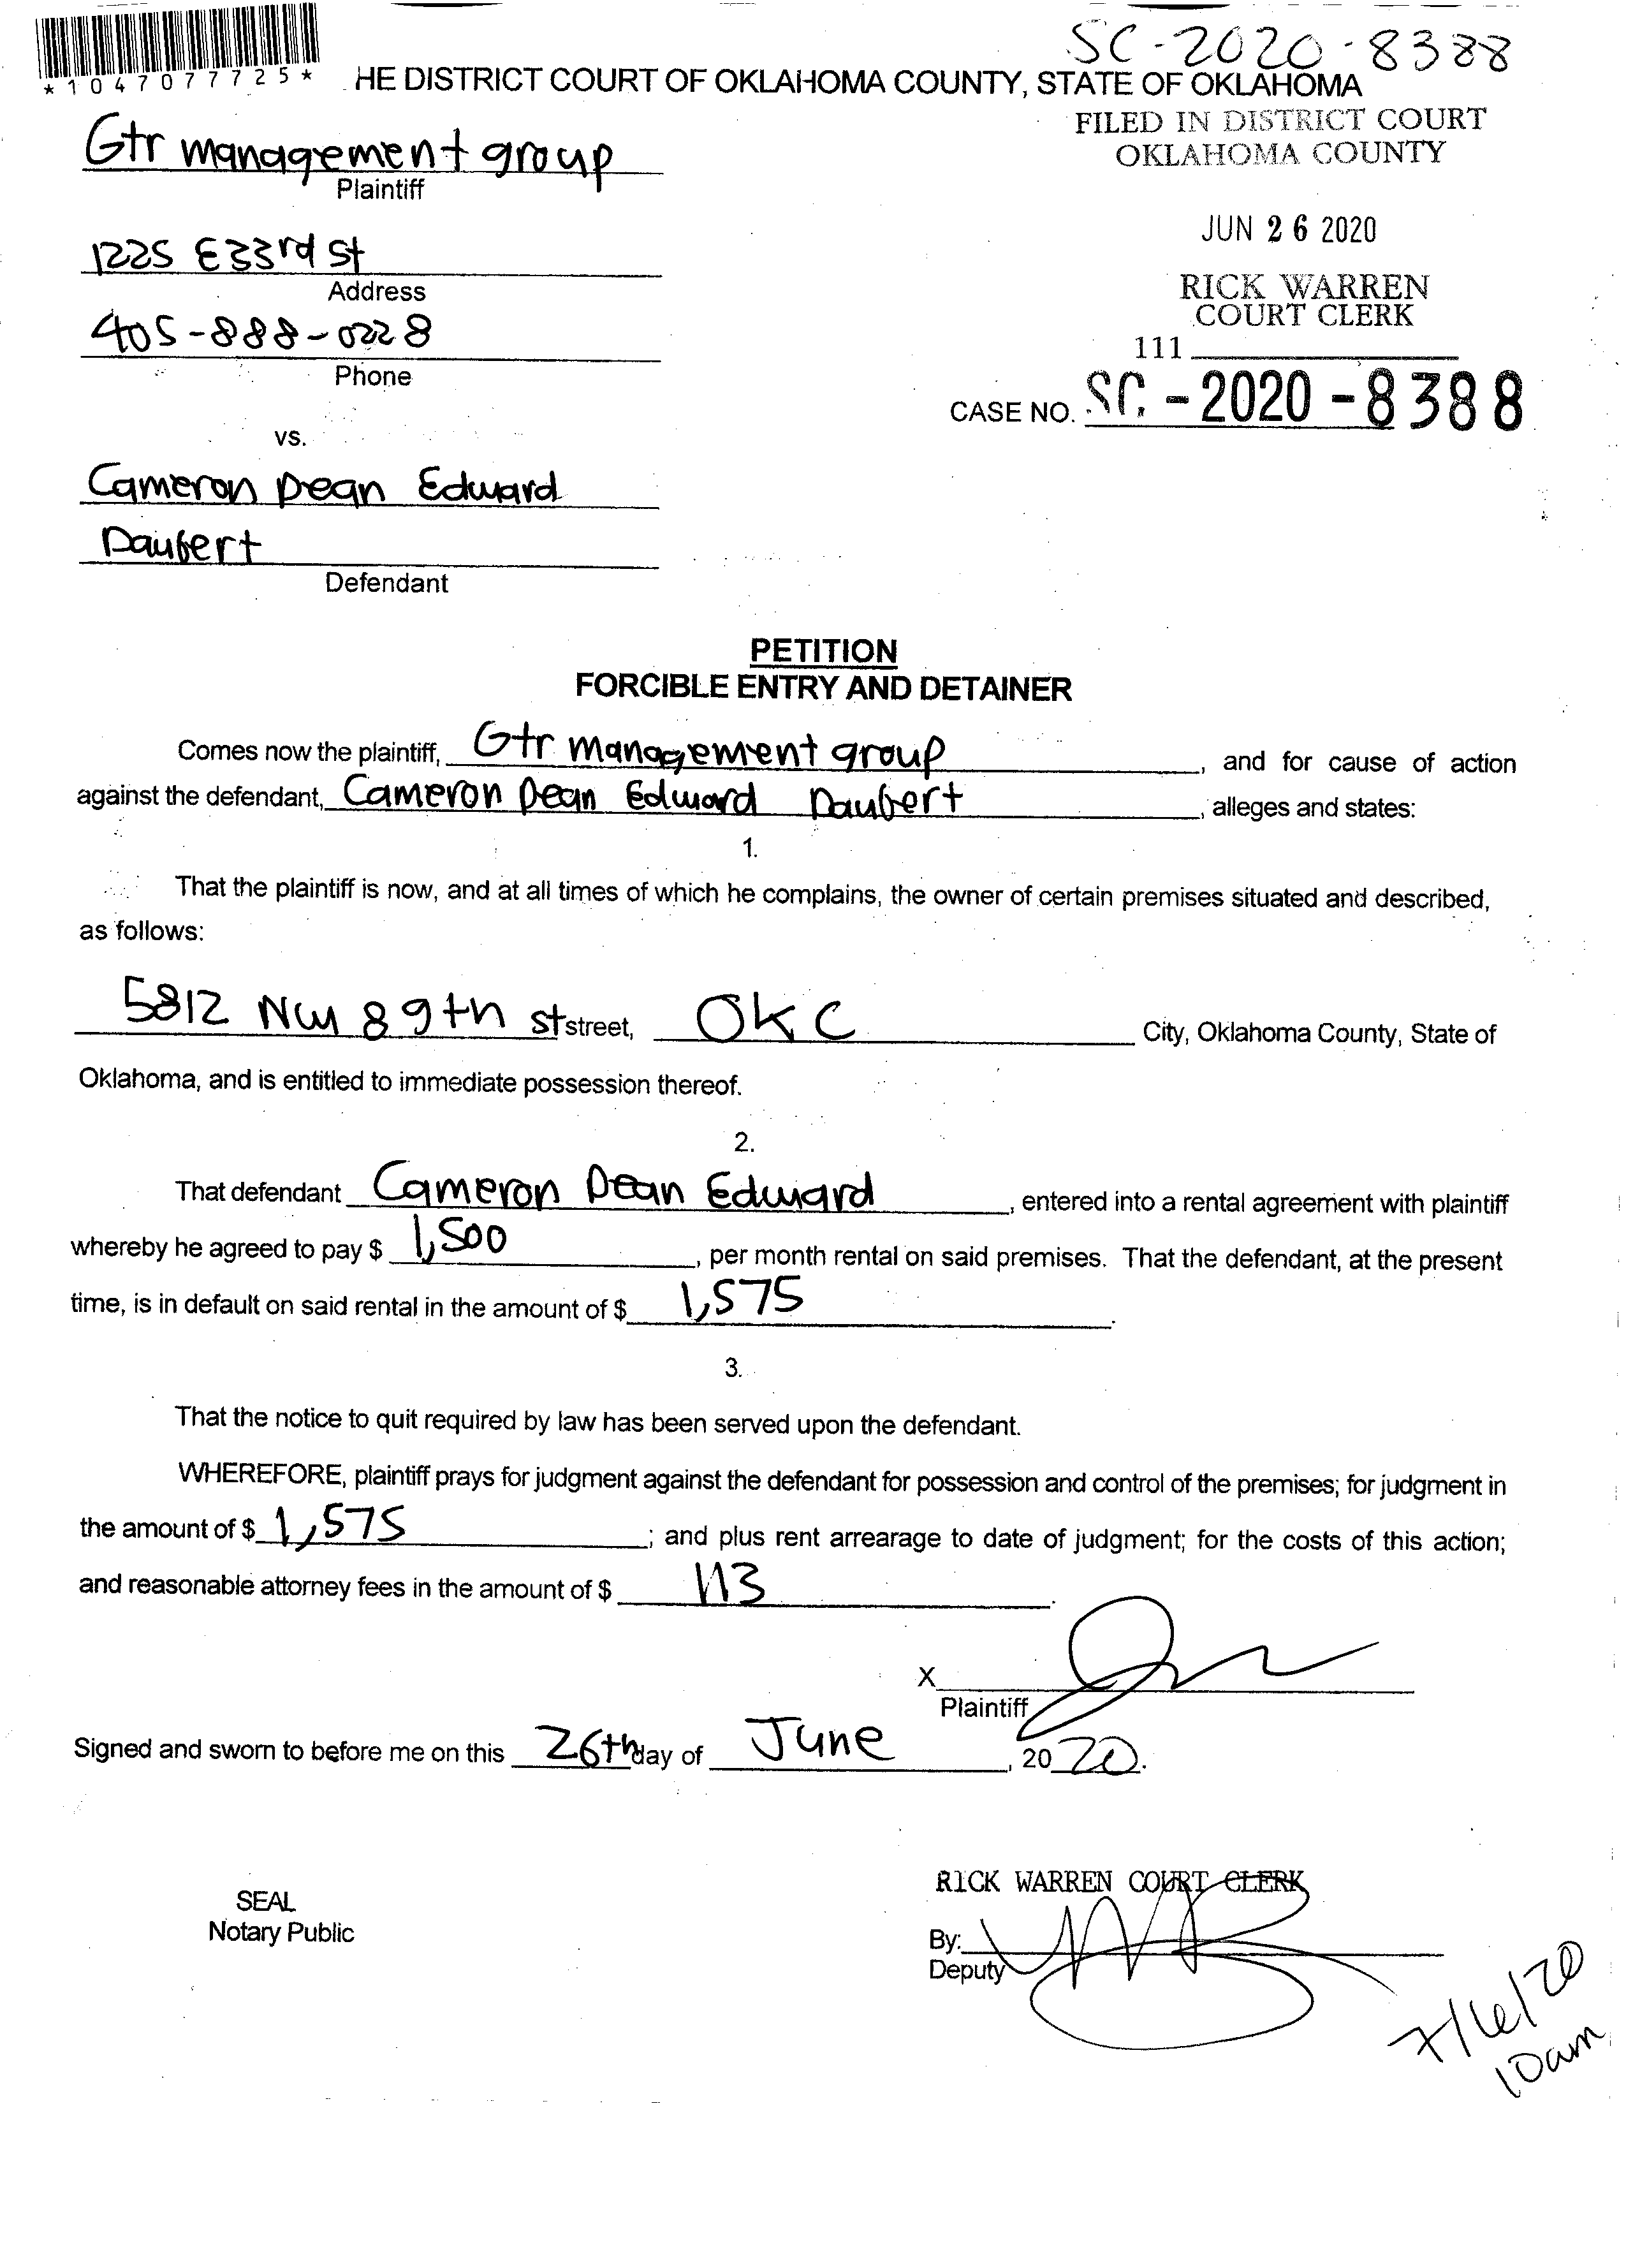 SC-2020-8388
*1047077725*
HE DISTRICT COURT OF OKLAHOMA COUNTY, STATE OF OKLAHOMA
FILED IN DISTRICT COURT
OKLAHOMA COUNTY
Gtr management group
Plaintiff
JUN 26 2020
1225 E 33rd St
Address
RICK WARREN
COURT CLERK
405-888-0228
Phone
111
CASE NO. SC-2020-8388
vs.
Cameron Dean Edward
Daubert
Defendant
PETITION
FORCIBLE ENTRY AND DETAINER
Comes now the plaintiff, Gtr management group, and for cause of action
against the defendant, Cameron Dean Edward Daubert, alleges and states:
1.
That the plaintiff is now, and at all times of which he complains, the owner of certain premises situated and described,
as follows:
5812 NW 89th st street, OKC City, Oklahoma County, State of
Oklahoma, and is entitled to immediate possession thereof.
2.
That defendant Cameron Dean Edward, entered into a rental agreement with plaintiff
whereby he agreed to pay $ 1,500, per month rental on said premises. That the defendant, at the present
time, is in default on said rental in the amount of $ 1,575.
3.
That the notice to quit required by law has been served upon the defendant.
WHEREFORE, plaintiff prays for judgment against the defendant for possession and control of the premises; for judgment in
the amount of $ 1,575; and plus rent arrearage to date of judgment; for the costs of this action;
and reasonable attorney fees in the amount of $ 113.
X
Plaintiff
Signed and sworn to before me on this 26th day of June, 2020.
RICK WARREN COURT CLERK
SEAL
Notary Public
By:
Deputy
7/6/20
10am